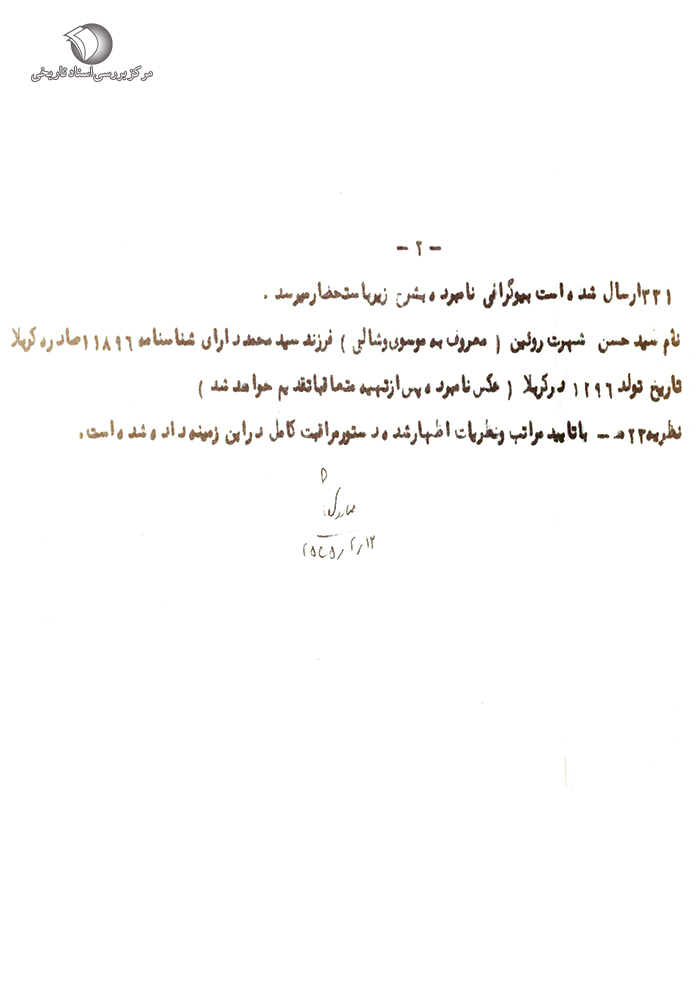 مرکز بررسی اسناد تاریخی
- ۲ -
۳۳۱ ارسال شده است بیوگرافی نامبرده بشرح زیر باستحضار میرسد .
نام سید حسن شهرت روئین ( معروف به موسوی وشالی ) فرزند سید محمد دارای شناسنامه ۱۱۸۹۶ صادره کربلا
تاریخ تولد ۱۲۹۶ در کربلا ( عکس نامبرده پس از تهیه متعاقبا تقدیم خواهد شد )
نظریه ۲۳ ه‍ - با تایید مراتب ونظریات اظهار شده دستور مراقبت کامل در این زمینه داده شده است .